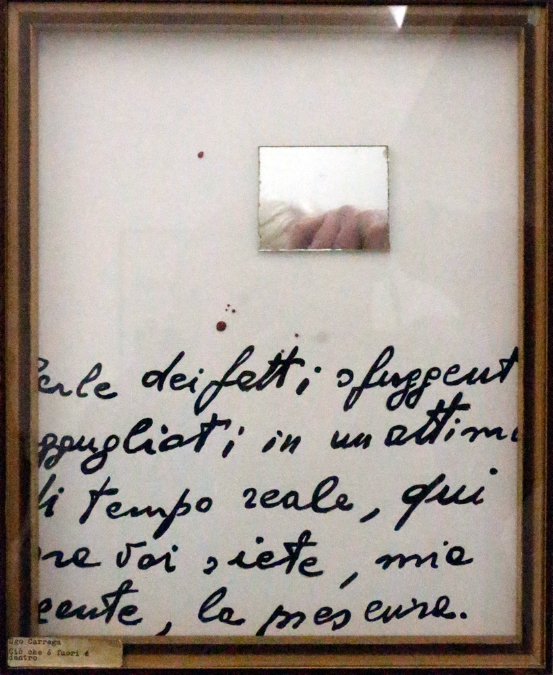 erle dei fatti sfuggent
ggugliati in un attim
di tempo reale, qui
ora voi siete, mia
gente, la presenza.
Ugo Carrega
Ciò che è fuori è
dentro